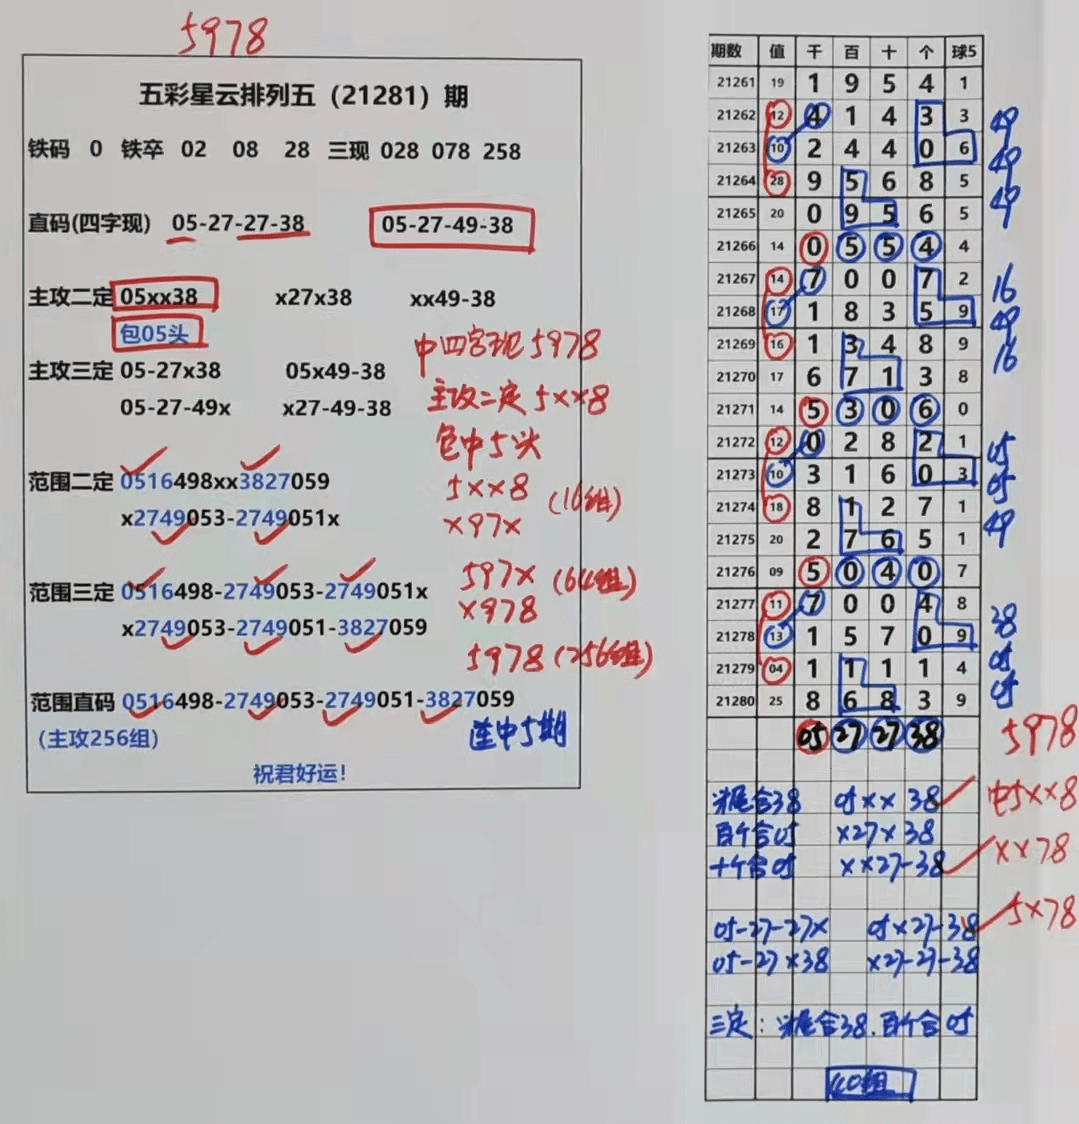 5978
五彩星云排列五（21281）期
铁码 0 铁卒 02 08 28 三现 028 078 258
直码(四字现) 05-27-27-38 05-27-49-38
主攻二定 05xx38 x27x38 xx49-38
包05头
中四字现5978
主攻三定 05-27x38 05x49-38
主攻二定5xx8
05-27-49x x27-49-38
包中5头
范围二定 0516498xx3827059
5xx8 (16组)
x2749053-2749051x
x97x
范围三定 0516498-2749053-2749051x
597x (64组)
x2749053-2749051-3827059
x978
5978 (256组)
范围直码 0516498-2749053-2749051-3827059
(主攻256组)
连中5期
祝君好运!
期数 值 千 百 十 个 球5
21261 19 1 9 5 4 1
21262 12 4 1 4 3 3 49
21263 10 2 4 4 0 6 49
21264 28 9 5 6 8 5 49
21265 20 0 9 5 6 5
21266 14 0 5 5 4 4
21267 14 7 0 0 7 2 16
21268 17 1 8 3 5 9 49
21269 16 1 3 4 8 9 16
21270 17 6 7 1 3 8
21271 14 5 3 0 6 0
21272 12 0 2 8 2 1 05
21273 10 3 1 6 0 3 05
21274 18 8 1 2 7 1 49
21275 20 2 7 6 5 1
21276 09 5 0 4 0 7
21277 11 7 0 0 4 8 38
21278 13 1 5 7 0 9 05
21279 04 1 1 1 1 4 05
21280 25 8 6 8 3 9
05 27 27 38 5978
尾合38 05xx38 中5xx8
百个合05 x27x38
十个合05 xx27-38 xx78
05-27-27x 05x27-38 5x78
05-27x38 x27-27-38
三定：尾合38.百个合05
40组